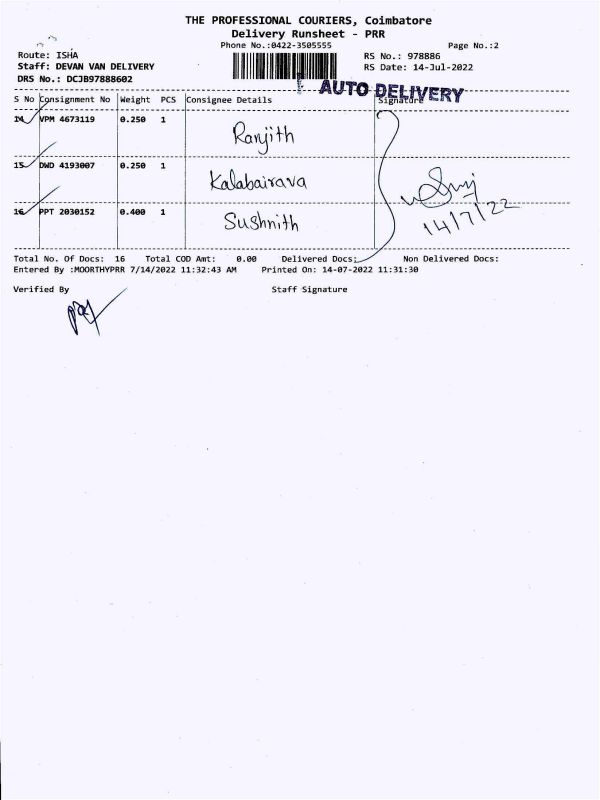 THE PROFESSIONAL COURIERS, Coimbatore
Delivery Runsheet - PRR
Phone No.:0422-3505555 Page No.:2
Route: ISHA RS No.: 978886
Staff: DEVAN VAN DELIVERY RS Date: 14-Jul-2022
DRS No.: DCJB97888602
AUTO DELIVERY
S No Consignment No Weight PCS Consignee Details Signature
14 VPM 4673119 0.250 1 Ranjith
15 DWD 4193007 0.250 1 Kalabairava
16 PPT 2030152 0.400 1 Sushnith
14/7/22
Total No. Of Docs: 16 Total COD Amt: 0.00 Delivered Docs: Non Delivered Docs:
Entered By :MOORTHYPRR 7/14/2022 11:32:43 AM Printed On: 14-07-2022 11:31:30
Verified By Staff Signature